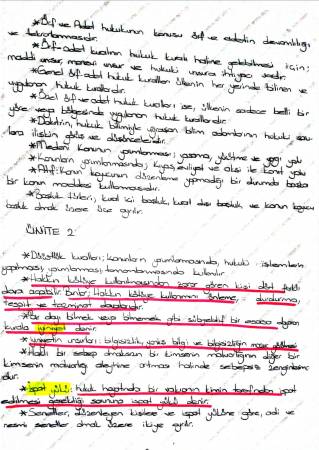 * Örf ve Adet hukukunun konusu örf ve adetin devamlılığı
ve tekrarlanmasıdır.
* Örf-adet kuralının hukuk kuralı haline gelebilmesi için;
maddi unsur, manevi unsur ve hukuki unsura ihtiyacı vardır.
* Genel örf adet hukuk kuralları ülkenin her yerinde bilinen ve
uygulanan hukuk kurallarıdır.
* Özel örf ve adet hukuk kuralları ise, ülkenin sadece belli bir
yöre veya bölgesinde uygulanan hukuk kurallarıdır.
* Doktrin, hukuk bilimiyle uğraşan bilim adamlarının hukuki
lara ilişkin görüş ve düşünceleridir.
* Medeni Kanunun yorumlanması; yasama, yürütme ve yargı yolu
* Kanunların yorumlanmasında; kıyas, evleviyet ve aksi ile kanıt yolu
* Atıf: Kanun koyucunun düzenleme yapmadığı bir durumda başka
bir kanun maddesi kullanmasıdır.
* Boşluk türleri; kural içi boşluk, kural dışı boşluk ve kanun koyucu
boşluk olmak üzere üçe ayrılır.
ÜNİTE 2
* Dürüstlük kuralları; kanunların yorumlanmasında, hukuki işlemlerin
yapılması, yorumlanması, tamamlanmasında kullanılır.
* Hakkın kötüye kullanılmasından zarar gören kişi dört farklı
dava açabilir. Bunlar; Hakkın kötüye kullanımını önleme, durdurma,
tespit ve tazminat davalarıdır.
* Bir olayı bilmek veya bilmemek gibi sübjektif bir esasa dayanan
kurala iyiniyet denir.
* İyiniyetin unsurları: bilgisizlik, yanlış bilgi ve bilgisizliğin
* Haklı bir sebep olmaksızın bir kimsenin malvarlığının diğer bir
kimsenin malvarlığı aleyhine artması halinde sebepsiz zenginleşme
dur.
* İspat yükü: hukuk hayatında bir vakıanın kimin tarafından ispat
edilmesi gerektiği sorununa ispat yükü denir.
* Senetler, düzenleyen kişilere ve ispat gücüne göre, adi ve
resmi senetler olmak üzere ikiye ayrılır.